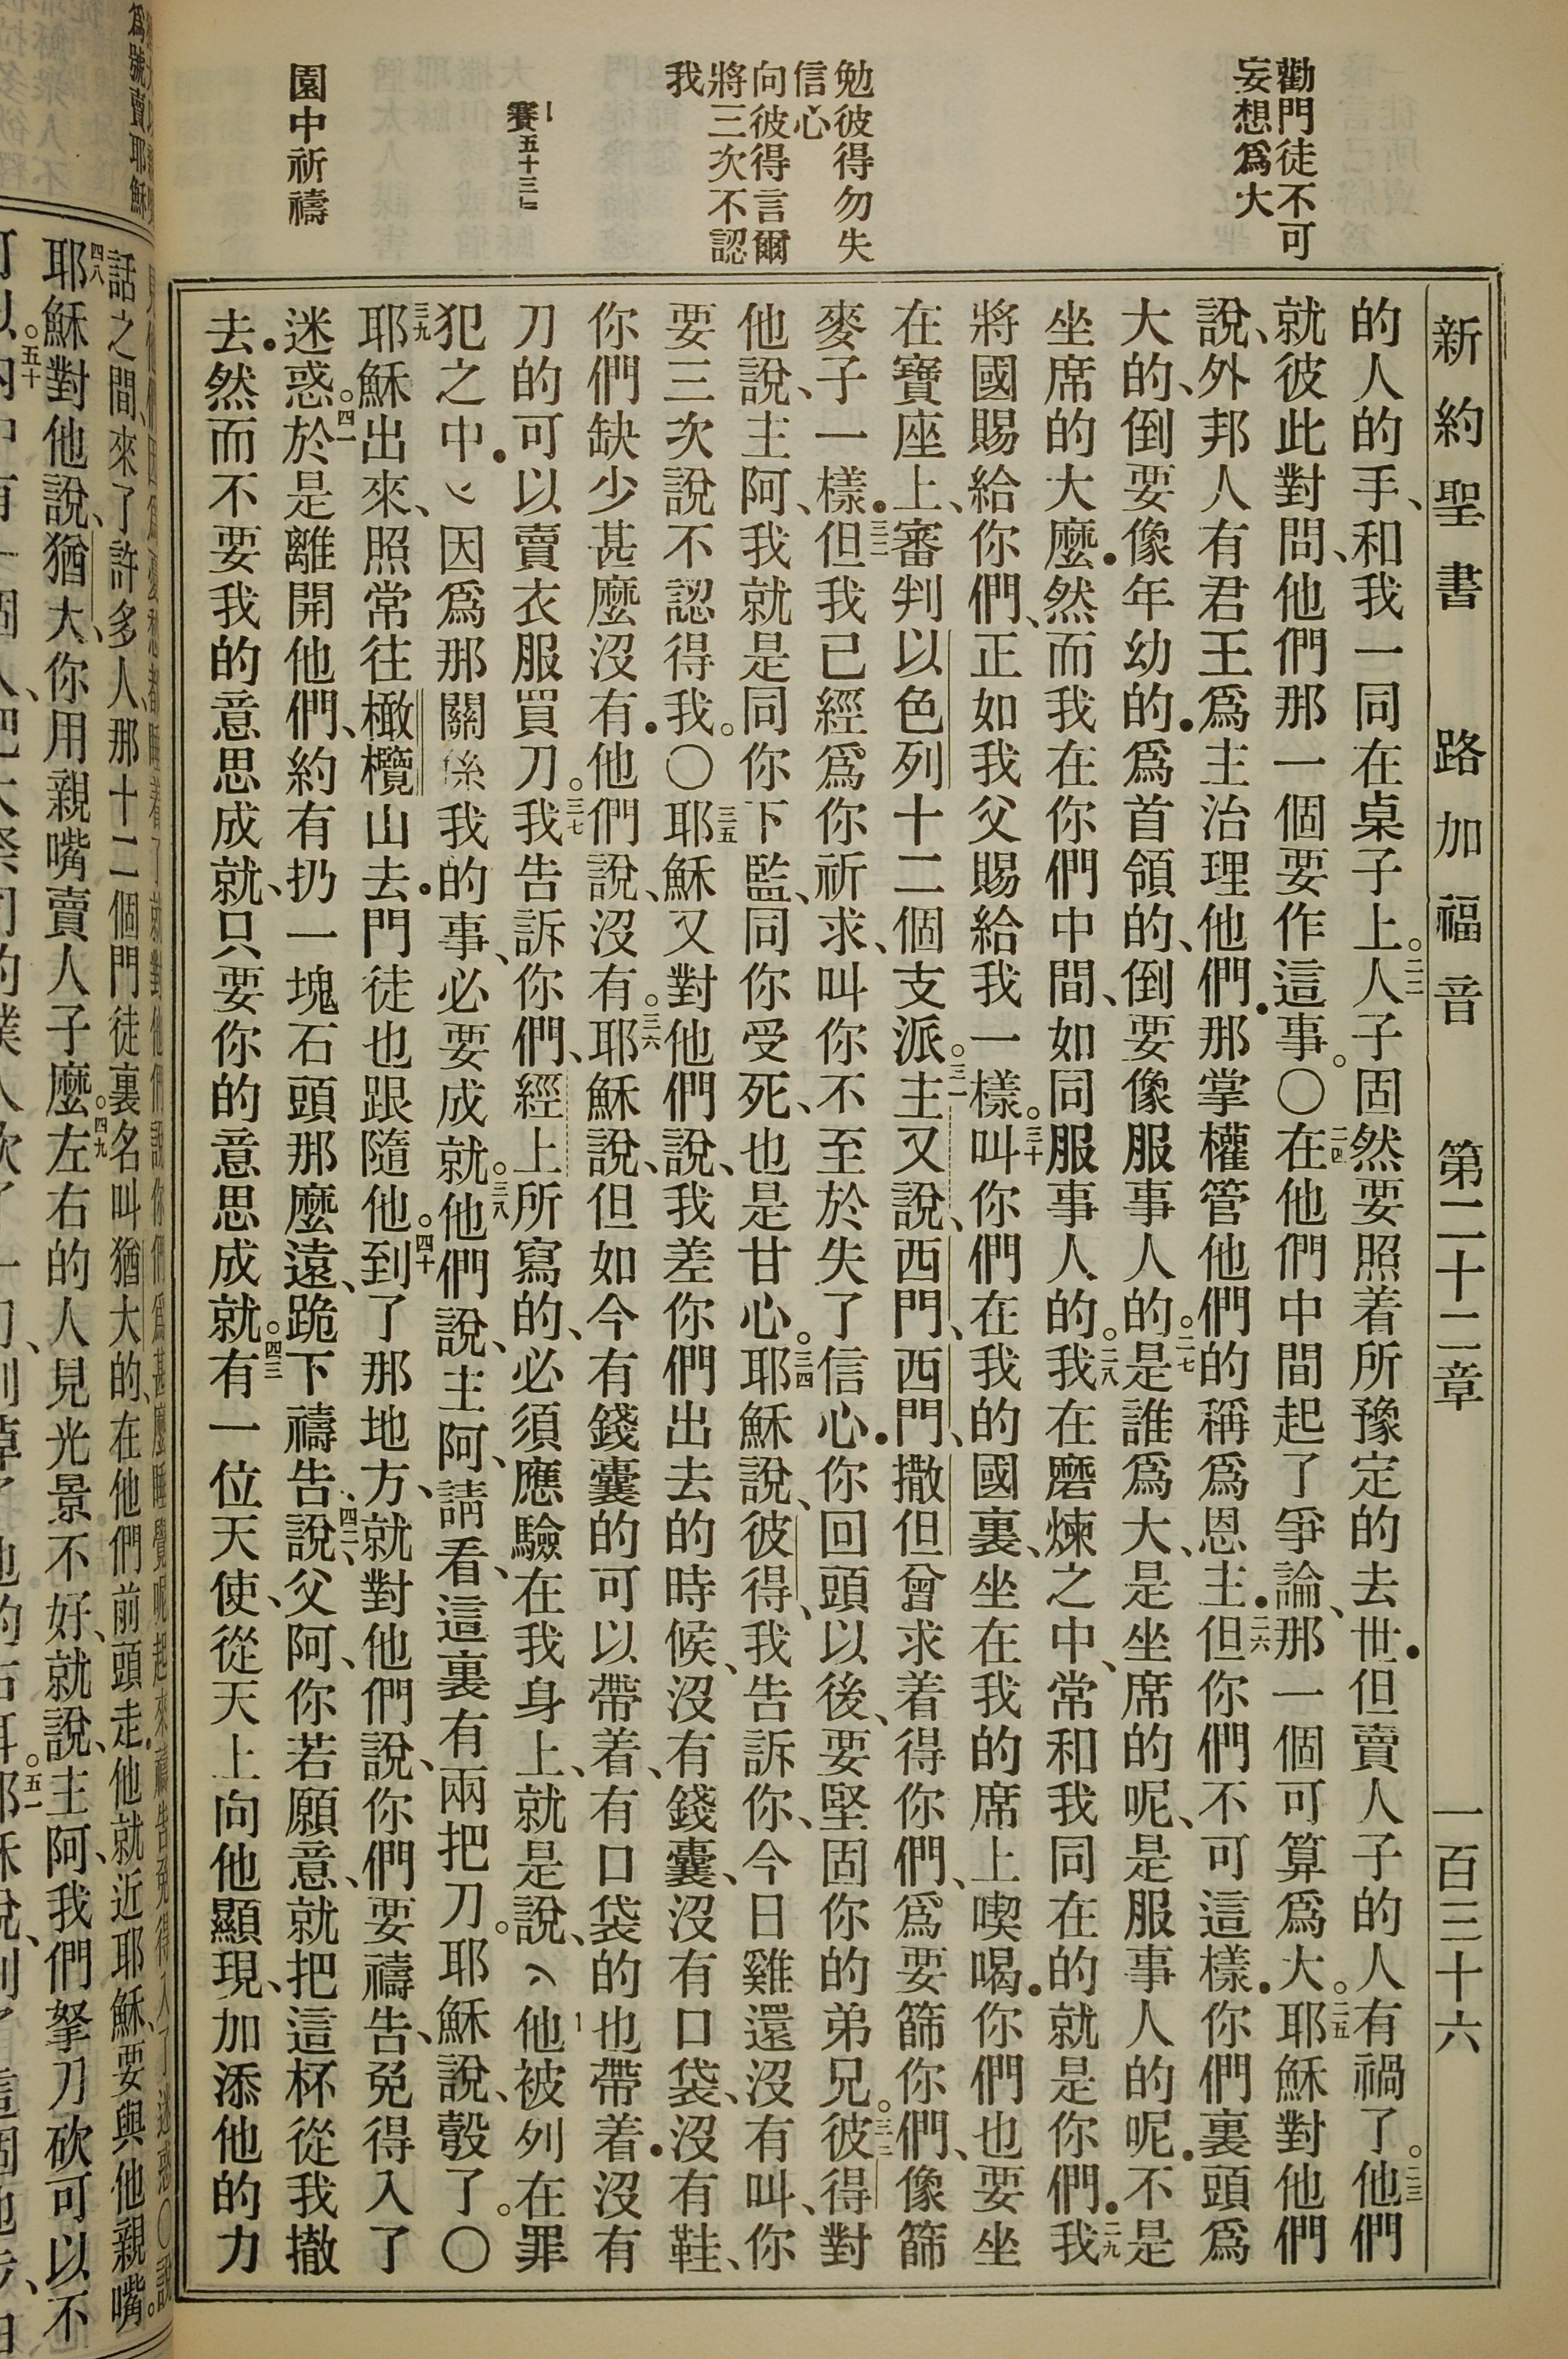 新約聖書 路加福音 第二十二章 一百三十六
勸門徒不可
妄想爲大
勉彼得勿失
信心
向彼得言爾
將三次不認
我
賽五十三
園中祈禱
的人的手、和我一同在桌子上。二二人子固然要照着所豫定的去世●但賣人子的人有禍了。二三他們
就彼此對問、他們那一個要作這事。〇二四在他們中間起了爭論、那一個可算爲大。二五耶穌對他們
說、外邦人有君王爲主治理他們●那掌權管他們的稱爲恩主●二六但你們不可這樣●你們裏頭爲
大的、倒要像年幼的●爲首領的、倒要像服事人的。二七是誰爲大、是坐席的呢、是服事人的呢●不是
坐席的大麼●然而我在你們中間、如同服事人的。二八我在磨煉之中、常和我同在的就是你們●二九我
將國賜給你們、正如我父賜給我一樣。三十叫你們在我的國裏、坐在我的席上喫喝●你們也要坐
在寶座上、審判以色列十二個支派。三一主又說、西門、西門、撒但曾求着得你們、爲要篩你們、像篩
麥子一樣●三二但我已經爲你祈求、叫你不至於失了信心●你回頭以後、要堅固你的弟兄。三三彼得對
他說、主阿、我就是同你下監、同你受死、也是甘心。三四耶穌說、彼得、我告訴你、今日雞還沒有叫、你
要三次說不認得我。〇三五耶穌又對他們說、我差你們出去的時候、沒有錢囊、沒有口袋、沒有鞋、
你們缺少甚麼沒有●他們說、沒有。三六耶穌說、但如今有錢囊的可以帶着、有口袋的也帶着●沒有
刀的可以賣衣服買刀。三七我告訴你們、經上所寫的、必須應驗在我身上、就是說、他被列在罪
犯之中●因爲那關係我的事、必要成就。三八他們說、主阿、請看、這裏有兩把刀。耶穌說、彀了。〇
三九耶穌出來、照常往橄欖山去●門徒也跟隨他。四十到了那地方、就對他們說、你們要禱告、免得入了
迷惑。四一於是離開他們、約有扔一塊石頭那麼遠、跪下禱告、四二說、父阿、你若願意、就把這杯從我撤
去●然而不要我的意思成就、只要你的意思成就。四三有一位天使、從天上向他顯現、加添他的力
爲號賣耶穌
話之間、來了許多人、那十二個門徒裏名叫猶大的、在他們前頭走●他就近耶穌、要與他親嘴。
四八耶穌對他說、猶大、你用親嘴賣人子麼。四九左右的人見光景不好、就說、主阿、我們拏刀砍可以不